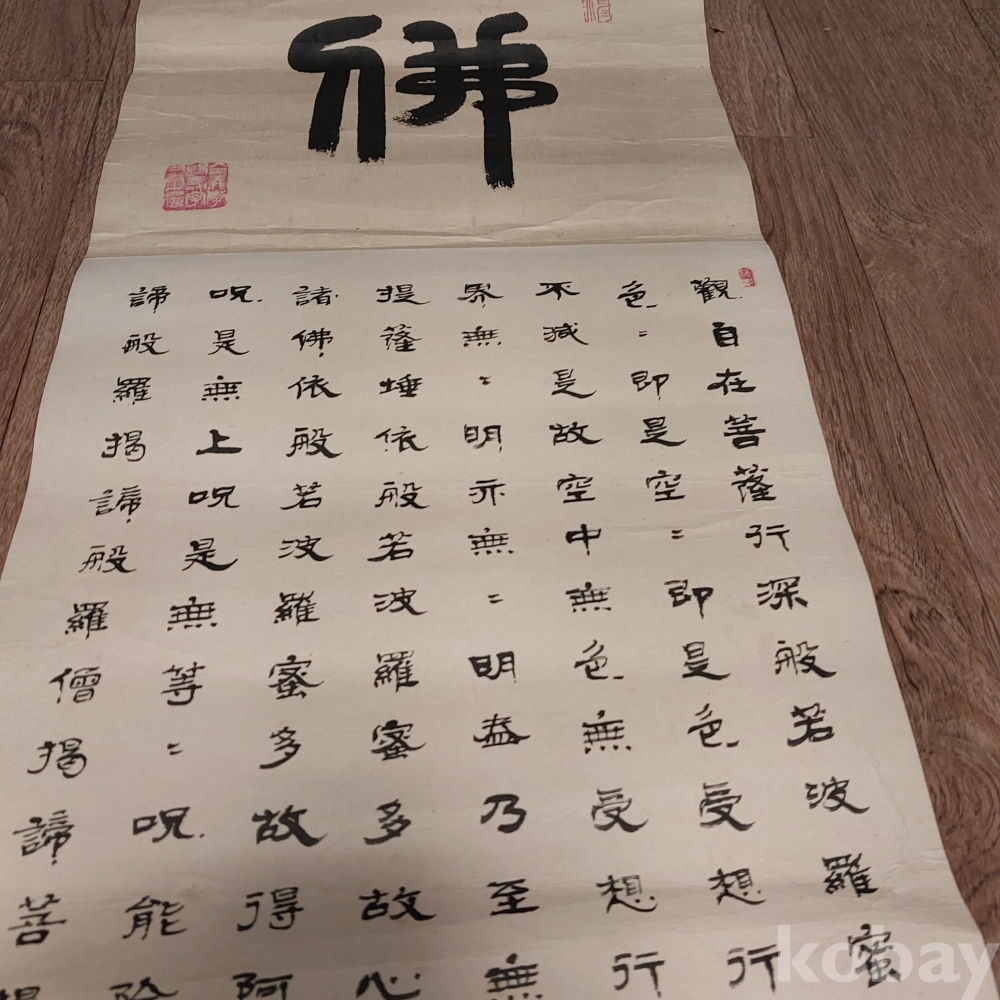 佛
觀自在菩薩行深般若波羅蜜
色〻即是空〻即是色受想行
不減是故空中無色無受想行
界無〻明亦無〻明盡乃至無
提薩埵依般若波羅蜜多故心
諸佛依般若波羅蜜多故得阿
呪是無上呪是無等〻呪能除
諦般羅揭諦般羅僧揭諦菩提
kobay